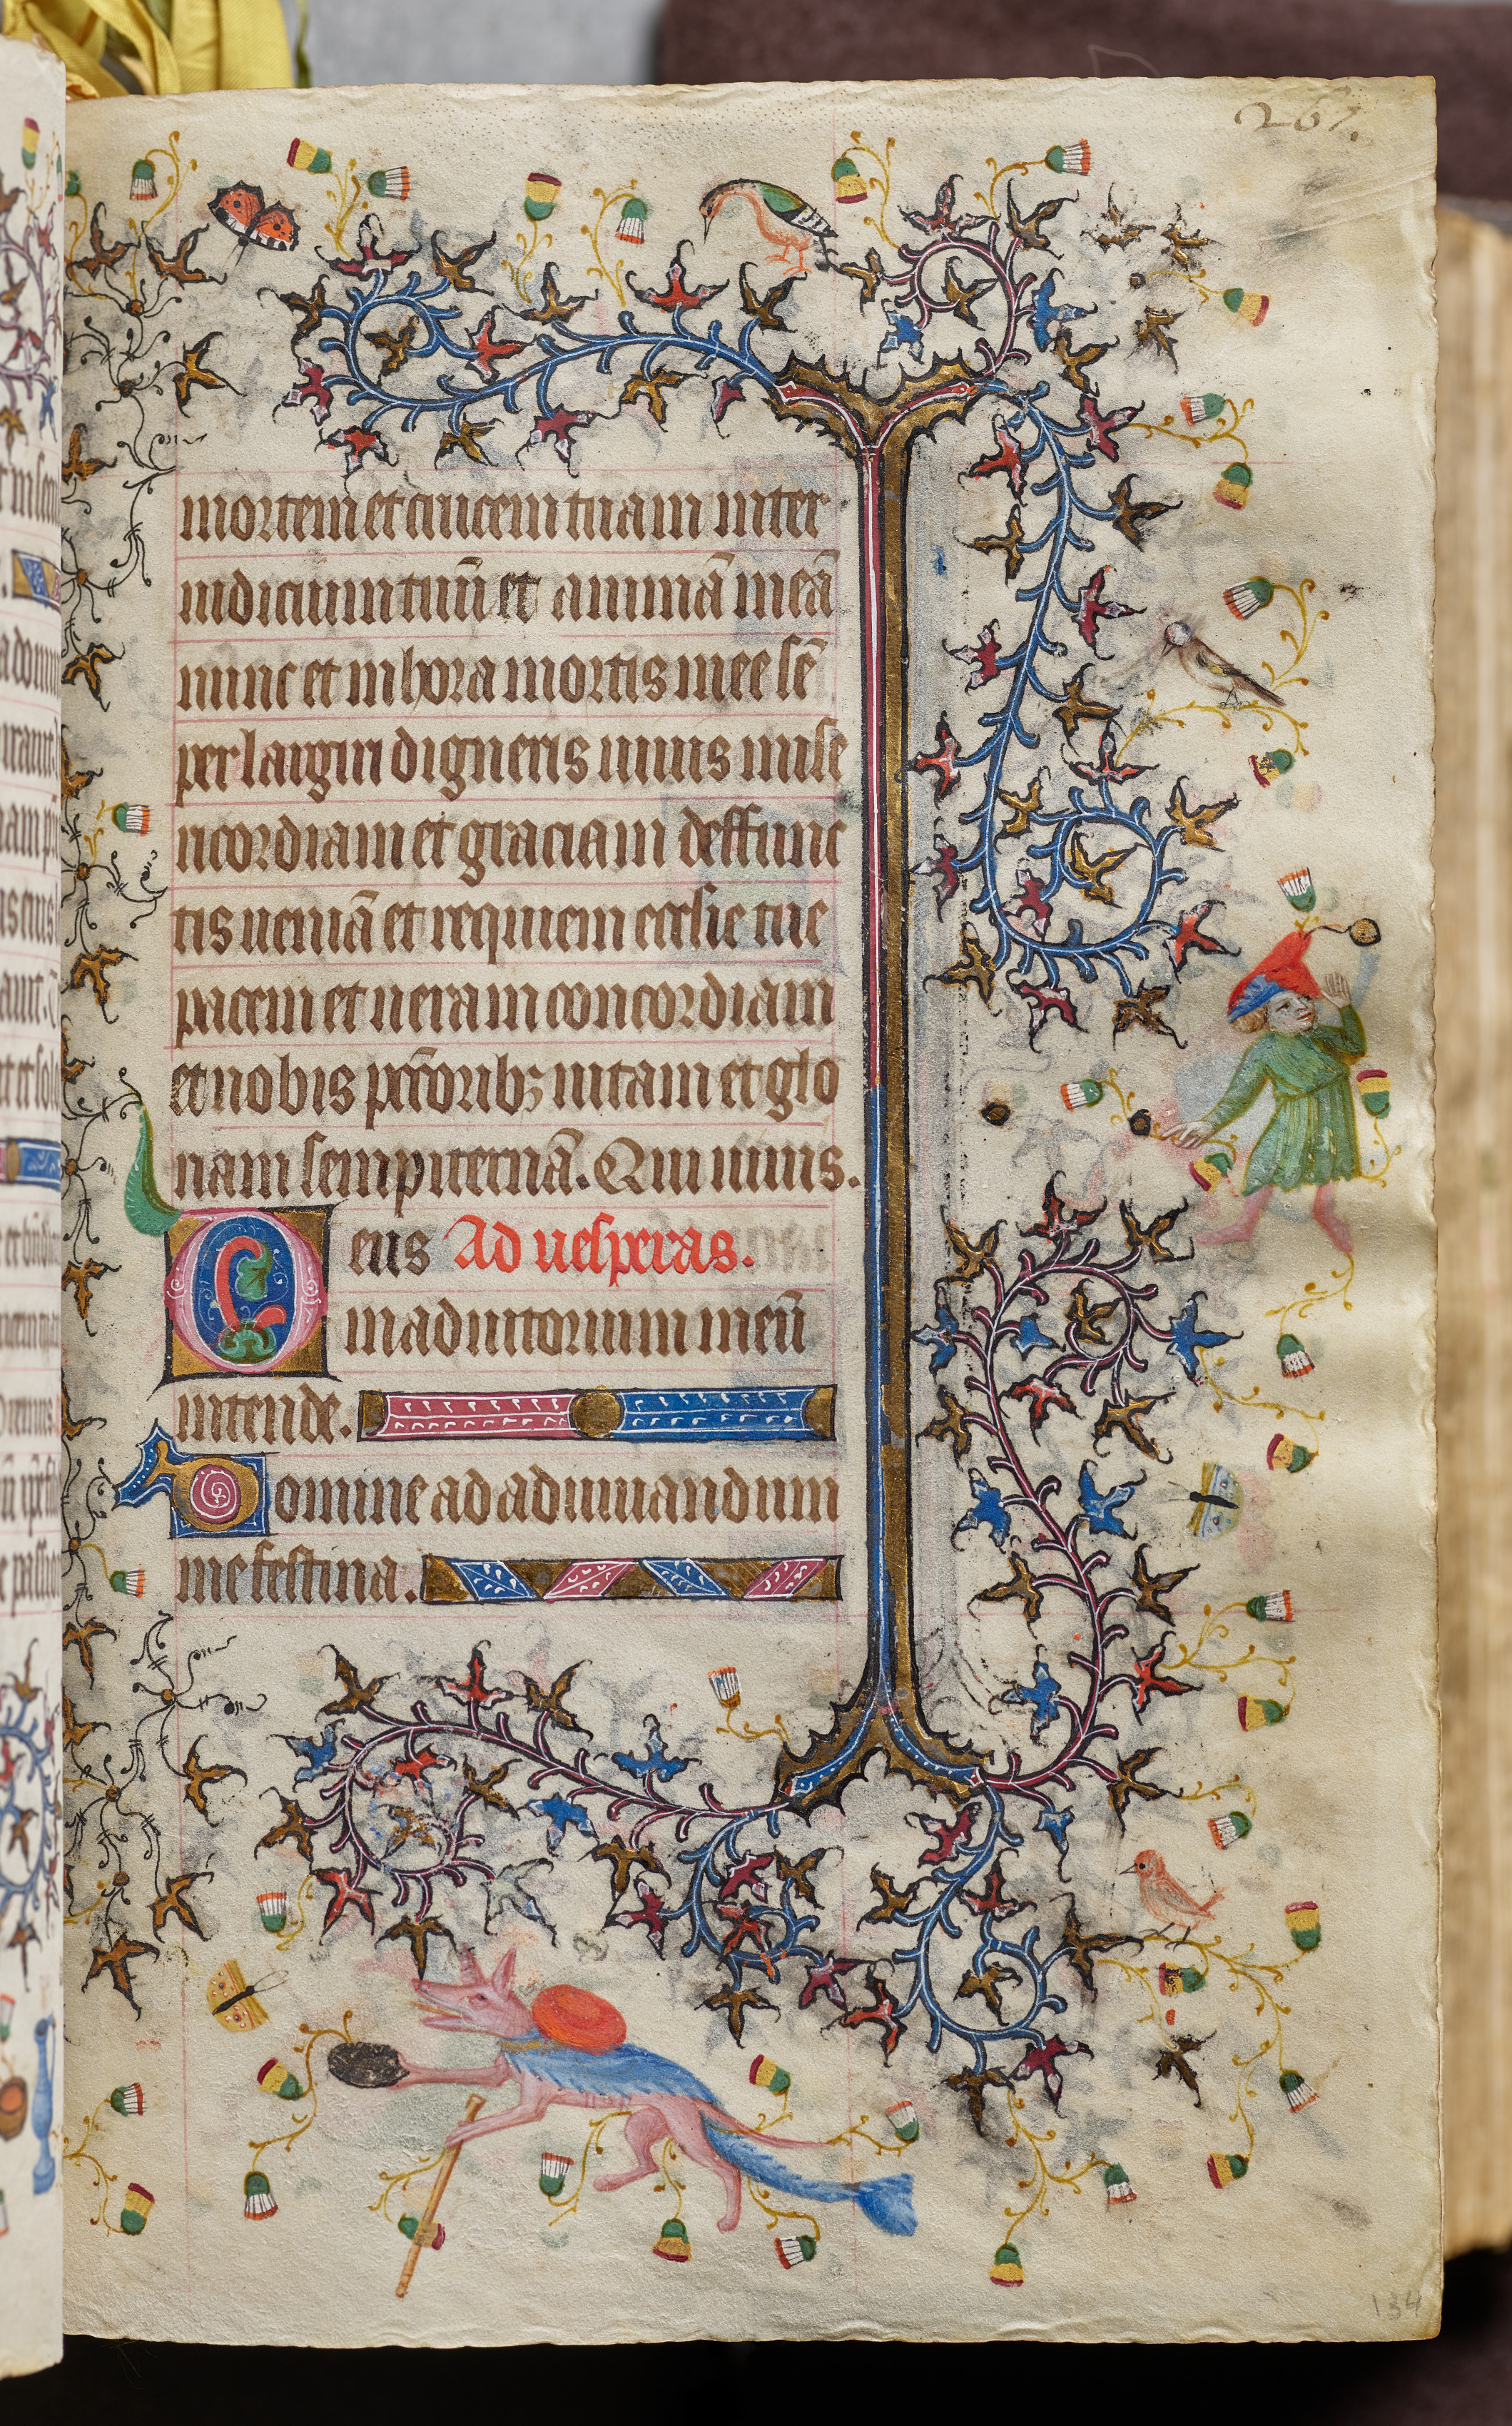 267.
mortem et crucem tuam inter
iudicium tuū et animā meā
nunc et in hora mortis mee sē
per largiri digneris uiuis mise
ricordiam et graciam deffunc
tis ueniā et requiem eccl̄ie tue
pacem et ueram concordiam
et nobis pccōribꝫ uitam et glo
riam sempiternā. Qui uiuis.
Deus Ad uesperas.
in adiutorium meū
intende.
Domine ad adiuuandum
me festina.
134